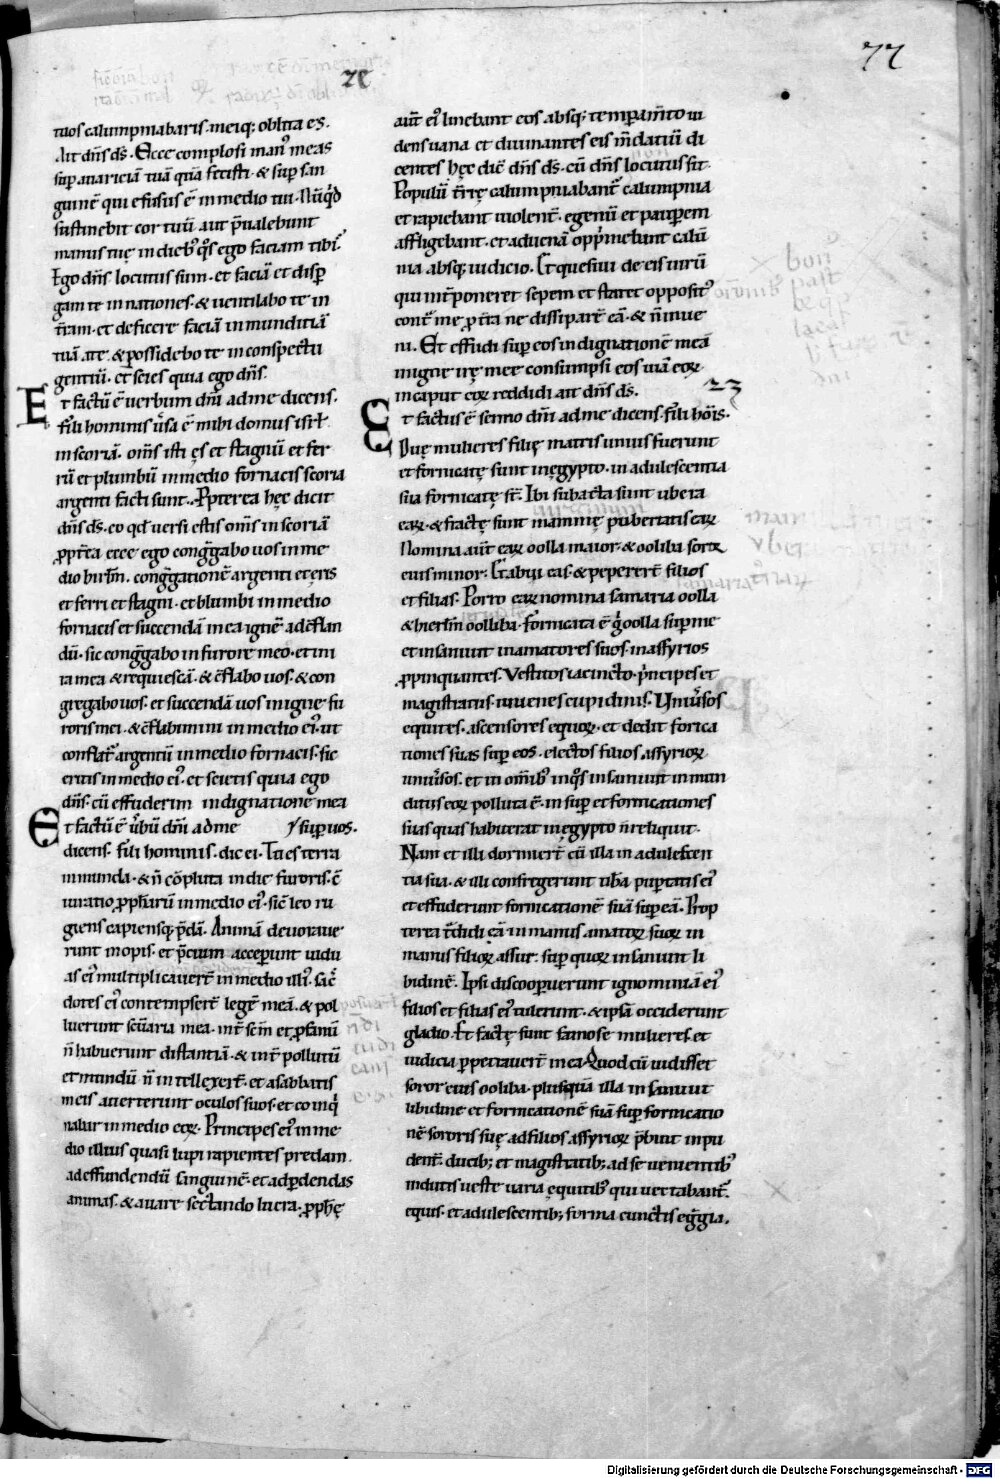 77
tuos calumpniabaris. meiq; oblita es.
Ait dn̄s ds̄. Ecce complosi man' meas
sup̄ auariciā tuā quā fecisti. & sup̄ san
guinē qui effusus ē in medio tui. Nūqd̄
sustinebit cor tuū aut p̄ualebunt
manus tuę in dieb' q̊s ego faciam tibi.
Ego dn̄s locutus sum. et faciā et disp̄
gam te in nationes. & uentilabo te in
tr̄am. et deficere faciā inmunditiā
tuā a te. & possidebo te in conspectu
gentiū. et scies quia ego dn̄s.
Et factū ē uerbum dn̄i ad me dicens.
fili hominis u̓sa ē mihi domus isrl̄
in scoriā. om̄s isti ęs et stagnū et fer
rū et plumbū in medio fornacis scoria
argenti facti sunt. Ppterea hęc dicit
dn̄s ds̄. eo qd̄ uersi estis om̄s in scoriā
ꝓpt̄ea ecce ego congḡabo uos in me
dio hirl̄m. congḡationē argenti et ęris
et ferri et stagni. et blumbi in medio
fornacis et succendā in ea ignē ad c̄flan
dū. sic congḡabo in furore meo. et in i
ra mea & requiescā. & c̄flabo uos. & con
gregabo uos. et succendā uos in igne fu
roris mei. & c̄flabimini in medio ei'. ut
conflat̄ argentū in medio fornacis. sic
eritis in medio ei'. et scietis quia ego
dn̄s. cū effuderim indignatione mea
Et factū ē u̓bū dn̄i ad me sup̄ uos.
dicens. fili hominis. dic ei. Tu es terra
inmunda. & n̄ cōpluta in die furoris. c̄
iuratio ꝓph̄arū in medio ei'. sic̄ leo ru
giens capiensq; p̄dā. Animā deuoraue
runt inopis. et p̄cium acceperunt uidu
as ei' multiplicauer̄t in medio illi'. sac̄
dotes ei' contempser̄t legē meā. & pol
luerunt sc̄uaria mea. int̄ sc̄m et ꝓfanū
n̄ habuerunt distantiā. & int̄ pollutū
et mundū n̄ intellexer̄t. et a sabbatis
meis auerterunt oculos suos. et coinqi
nabar in medio eoꝝ. Principes ei' in me
dio illius quasi lupi rapientes predam.
ad effundendū sanguinē. et ad p̄dendas
animas. & auare sectando lucra. ꝓphę
aut̄ ei' linebant eos absq; temp̄am̄to ui
dens uana et diuinantes eis m̄datiū di
centes hęc dic̄ dn̄s ds̄. cū dn̄s locutus n̄ sit.
Populū t̄rę calumpniabant̄ calumpnia
et rapiebant uiolent̄. egenū et paup̄em
affligebant. et aduenā opp̄mebant calū
nia absq; iudicio. Et quesiui de eis uirū
qui int̄poneret sepem et staret opposit'
cont̄ me ꝓ tr̄a ne dissipar̄e eā. & n̄ inue
ni. Et effudi sup̄ eos indignationē meā
in igne irę mee consumpsi eos uiā eoꝝ
in caput eoꝝ reddidi ait dn̄s ds̄. 23
Et factus ē sermo dn̄i ad me dicens. fili hoīs.
Duę mulieres filię matris unius fuerunt
et fornicatę sunt in ęgypto. in adulescentia
sua fornicatę st̄. Ibi subacta sunt ubera
eaꝝ. & fractę sunt mammę pubertatis eaꝝ
Nomina aut̄ eaꝝ oolla maior. & ooliba soror
eius minor. Et habui eas. & peperer̄t filios
et filias. Porro eaꝝ nomina samaria oolla
& hierl̄m oolliba. fornicata ē ḡ oolla sup̄ me
et insaniuit in amatores suos. in assyrios
ꝓpinquantes. Vestitos iacincto. p̄ncipes et
magistratus. iuuenes cupidinis. Uniu̓sos
equites. ascensores equoꝝ. et dedit forica
tiones suas sup̄ eos. electos filios assyrioꝝ
uniu̓sos. et in om̄ib' in q̊s insaniuit in mun
ditiis eoꝝ polluta ē. in sup̄ et fornicationes
suas quas habuerat in ęgypto n̄ reliquit.
Nam et illi dormier̄t cū illa in adulescen
tia sua. & illi confregerunt ub̄a pup̄tatis ei'
et effuderunt fornicationē suā sup̄ eā. Prop
terea t̄didi eā in manus amatoꝝ suoꝝ in
manus filioꝝ assur. sup̄ quoꝝ insaniuit li
bidinē. Ipsi discooperuerunt ignominiā ei'
filios et filias ei' tulerunt. & ipsā occiderunt
gladio. Et factę sunt famose mulieres. et
iudicia ꝓpetrauer̄t in ea. Quod cū uidisset
soror eius ooliba. plusquā illa insaniuit
libidine et fornicationē suā sup̄ fornicatio
nē sororis suę ad filios assyrioꝝ p̄buit inpu
dent̄. ducib; et magistratib; ad se uenientib'
indutis ueste uaria ęquitib' qui uectabant̄.
equis. et adulescentib; forma cunctis egḡia.
Digitalisierung gefördert durch die Deutsche Forschungsgemeinschaft - DFG